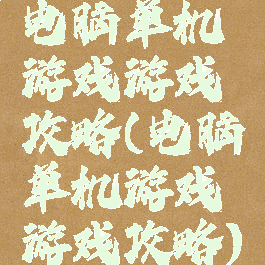 电脑单机
游戏游戏
攻略(电脑
单机游戏
游戏攻略)